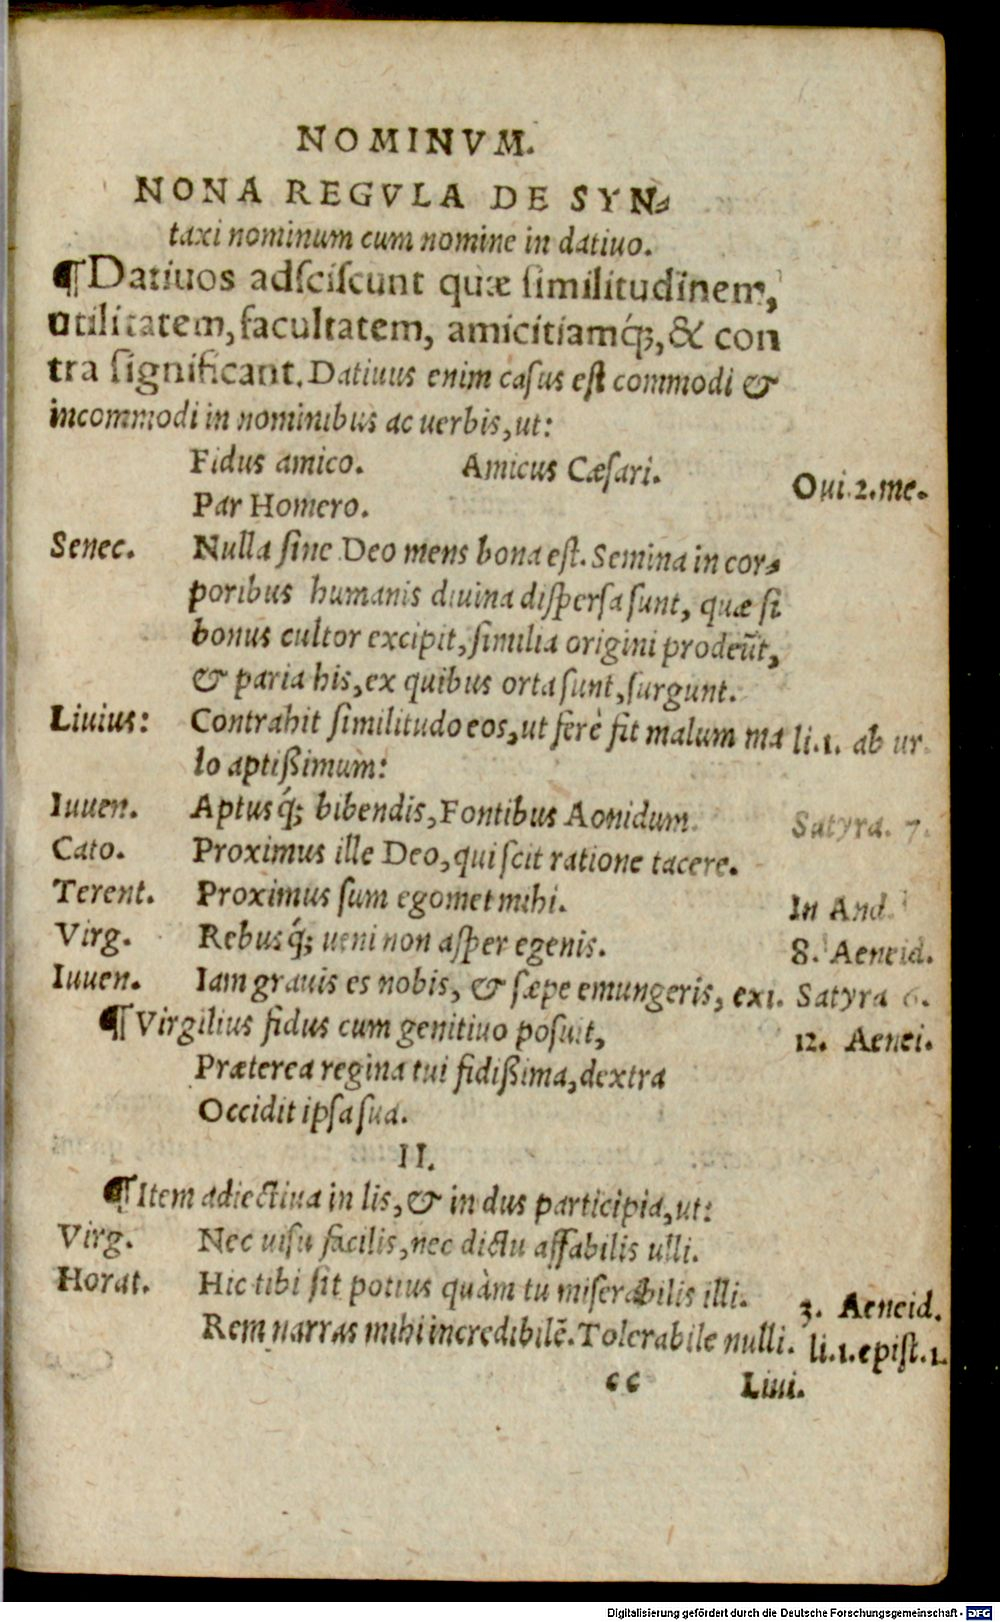 NOMINVM.
NONA REGVLA DE SYN⸗
taxi nominum cum nomine in datiuo.
¶Datiuos adſciſcunt quæ ſimilitudinem,
utilitatem, facultatem, amicitiamq́;, & con
tra ſignificant. Datiuus enim caſus eſt commodi &
incommodi in nominibus ac uerbis, ut:
Fidus amico. Amicus Cæſari. Oui.2.me.
Par Homero.
Senec. Nulla ſine Deo mens bona eſt. Semina in cor⸗
poribus humanis diuina diſperſa ſunt, quæ ſi
bonus cultor excipit, ſimilia origini prodeūt,
& paria his, ex quibus orta ſunt, ſurgunt.
Liuius: Contrahit ſimilitudo eos, ut ferè fit malum ma li.1. ab ur.
lo aptißimum:
Iuuen. Aptusq́; bibendis, Fontibus Aonidum. Satyra. 7.
Cato. Proximus ille Deo, qui ſcit ratione tacere.
Terent. Proximus ſum egomet mihi. In And.
Virg. Rebusq́; ueni non aſper egenis. 8. Aeneid.
Iuuen. Iam grauis es nobis, & ſæpe emungeris, exi. Satyra 6.
¶Virgilius fidus cum genitiuo poſuit, 12. Aenei.
Præterea regina tui fidißima, dextra
Occidit ipſa ſua.
II.
¶Item adiectiua in lis, & in dus participia, ut:
Virg. Nec uiſu facilis, nec dictu affabilis ulli.
Horat. Hic tibi ſit potius quàm tu miſerabilis illi. 3. Aeneid.
Rem narras mihi incredibilē. Tolerabile nulli. li.1.epiſt.1.
cc Liui.
Digitalisierung gefördert durch die Deutsche Forschungsgemeinschaft - DFG